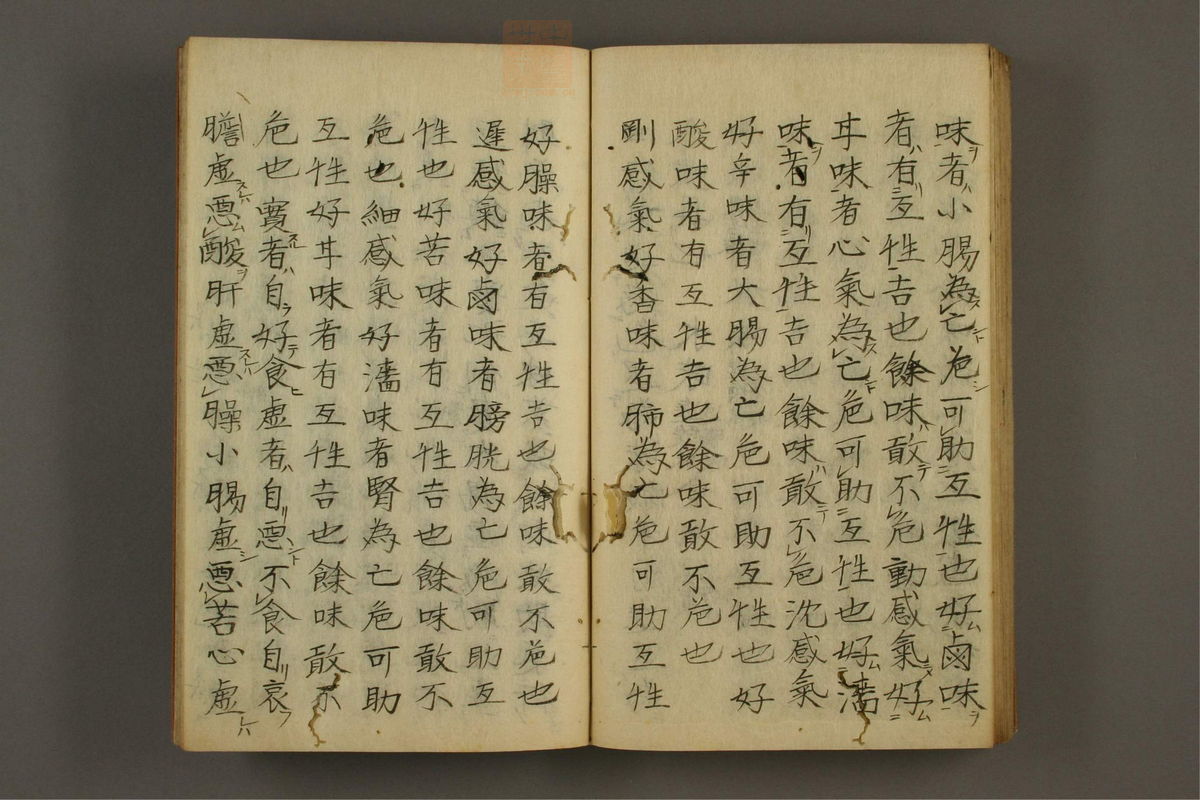 味者小腸為亡危可助互性也好鹵味
者有互性吉也餘味敢不危動感氣好
甘味者心氣為亡危可助互性也好㵤
味者有互性吉也餘味敢不危沈感氣
好辛味者大腸為亡危可助互性也好
酸味者有互性吉也餘味敢不危也
剛感氣好香味者肺為亡危可助互性
好臊味者有互性吉也餘味敢不危也
遲感氣好鹵味者膀胱為亡危可助互
性也好苦味者有互性吉也餘味敢不
危也細感氣好㵤味者腎為亡危可助
互性好甘味者有互性吉也餘味敢不
危也實者自好食虛者自惡不食自哀
膽虛惡酸肝虛惡臊小腸虛惡苦心虛